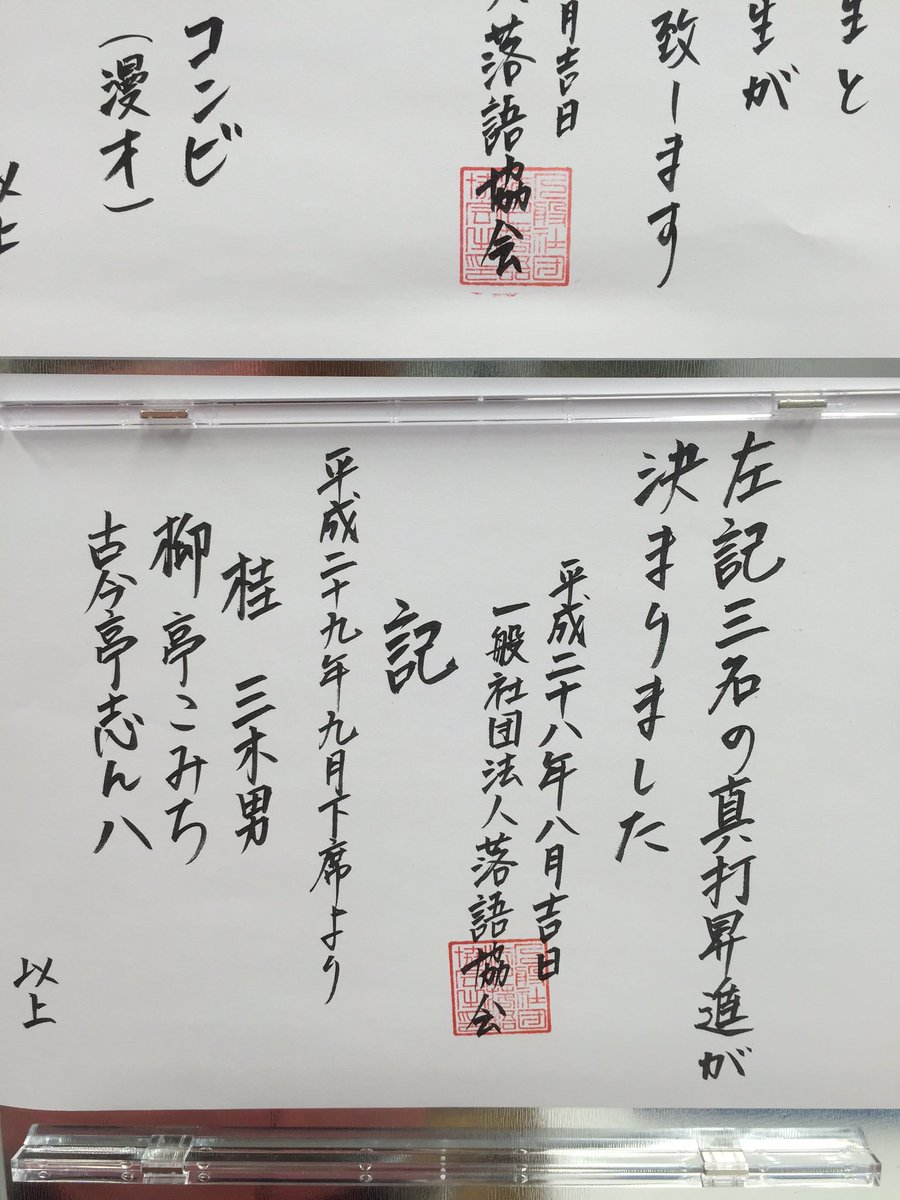 生と
生が
致します
月吉日
落語協会
コンビ
(漫才)
以上
左記三名の真打昇進が
決まりました
平成二十八年八月吉日
一般社団法人落語協会
記
平成二十九年九月下席より
桂 三木男
柳亭こみち
古今亭志ん八
以上